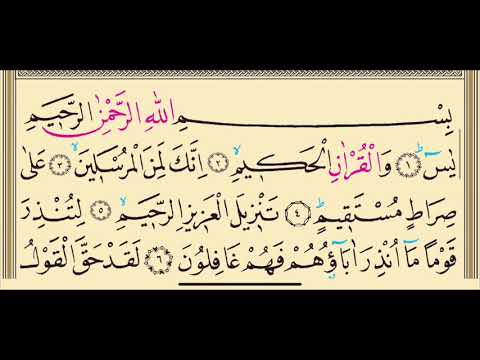 بِسْمِ اللهِ الرَّحْمٰنِ الرَّحِيمِ
يٰسٓ ۚ ﴿١﴾ وَالْقُرْاٰنِ الْحَكِيمِۙ ﴿٢﴾ اِنَّكَ لَمِنَ الْمُرْسَلِينَۙ ﴿٣﴾ عَلٰى
صِرَاطٍ مُسْتَقِيمٍۜ ﴿٤﴾ تَنْزِيلَ الْعَزِيزِ الرَّحِيمِۙ ﴿٥﴾ لِتُنْذِرَ
قَوْمًا مَٓا اُنْذِرَ اٰبَٓاؤُ۬هُمْ فَهُمْ غَافِلُونَ ﴿٦﴾ لَقَدْ حَقَّ الْقَوْلُ